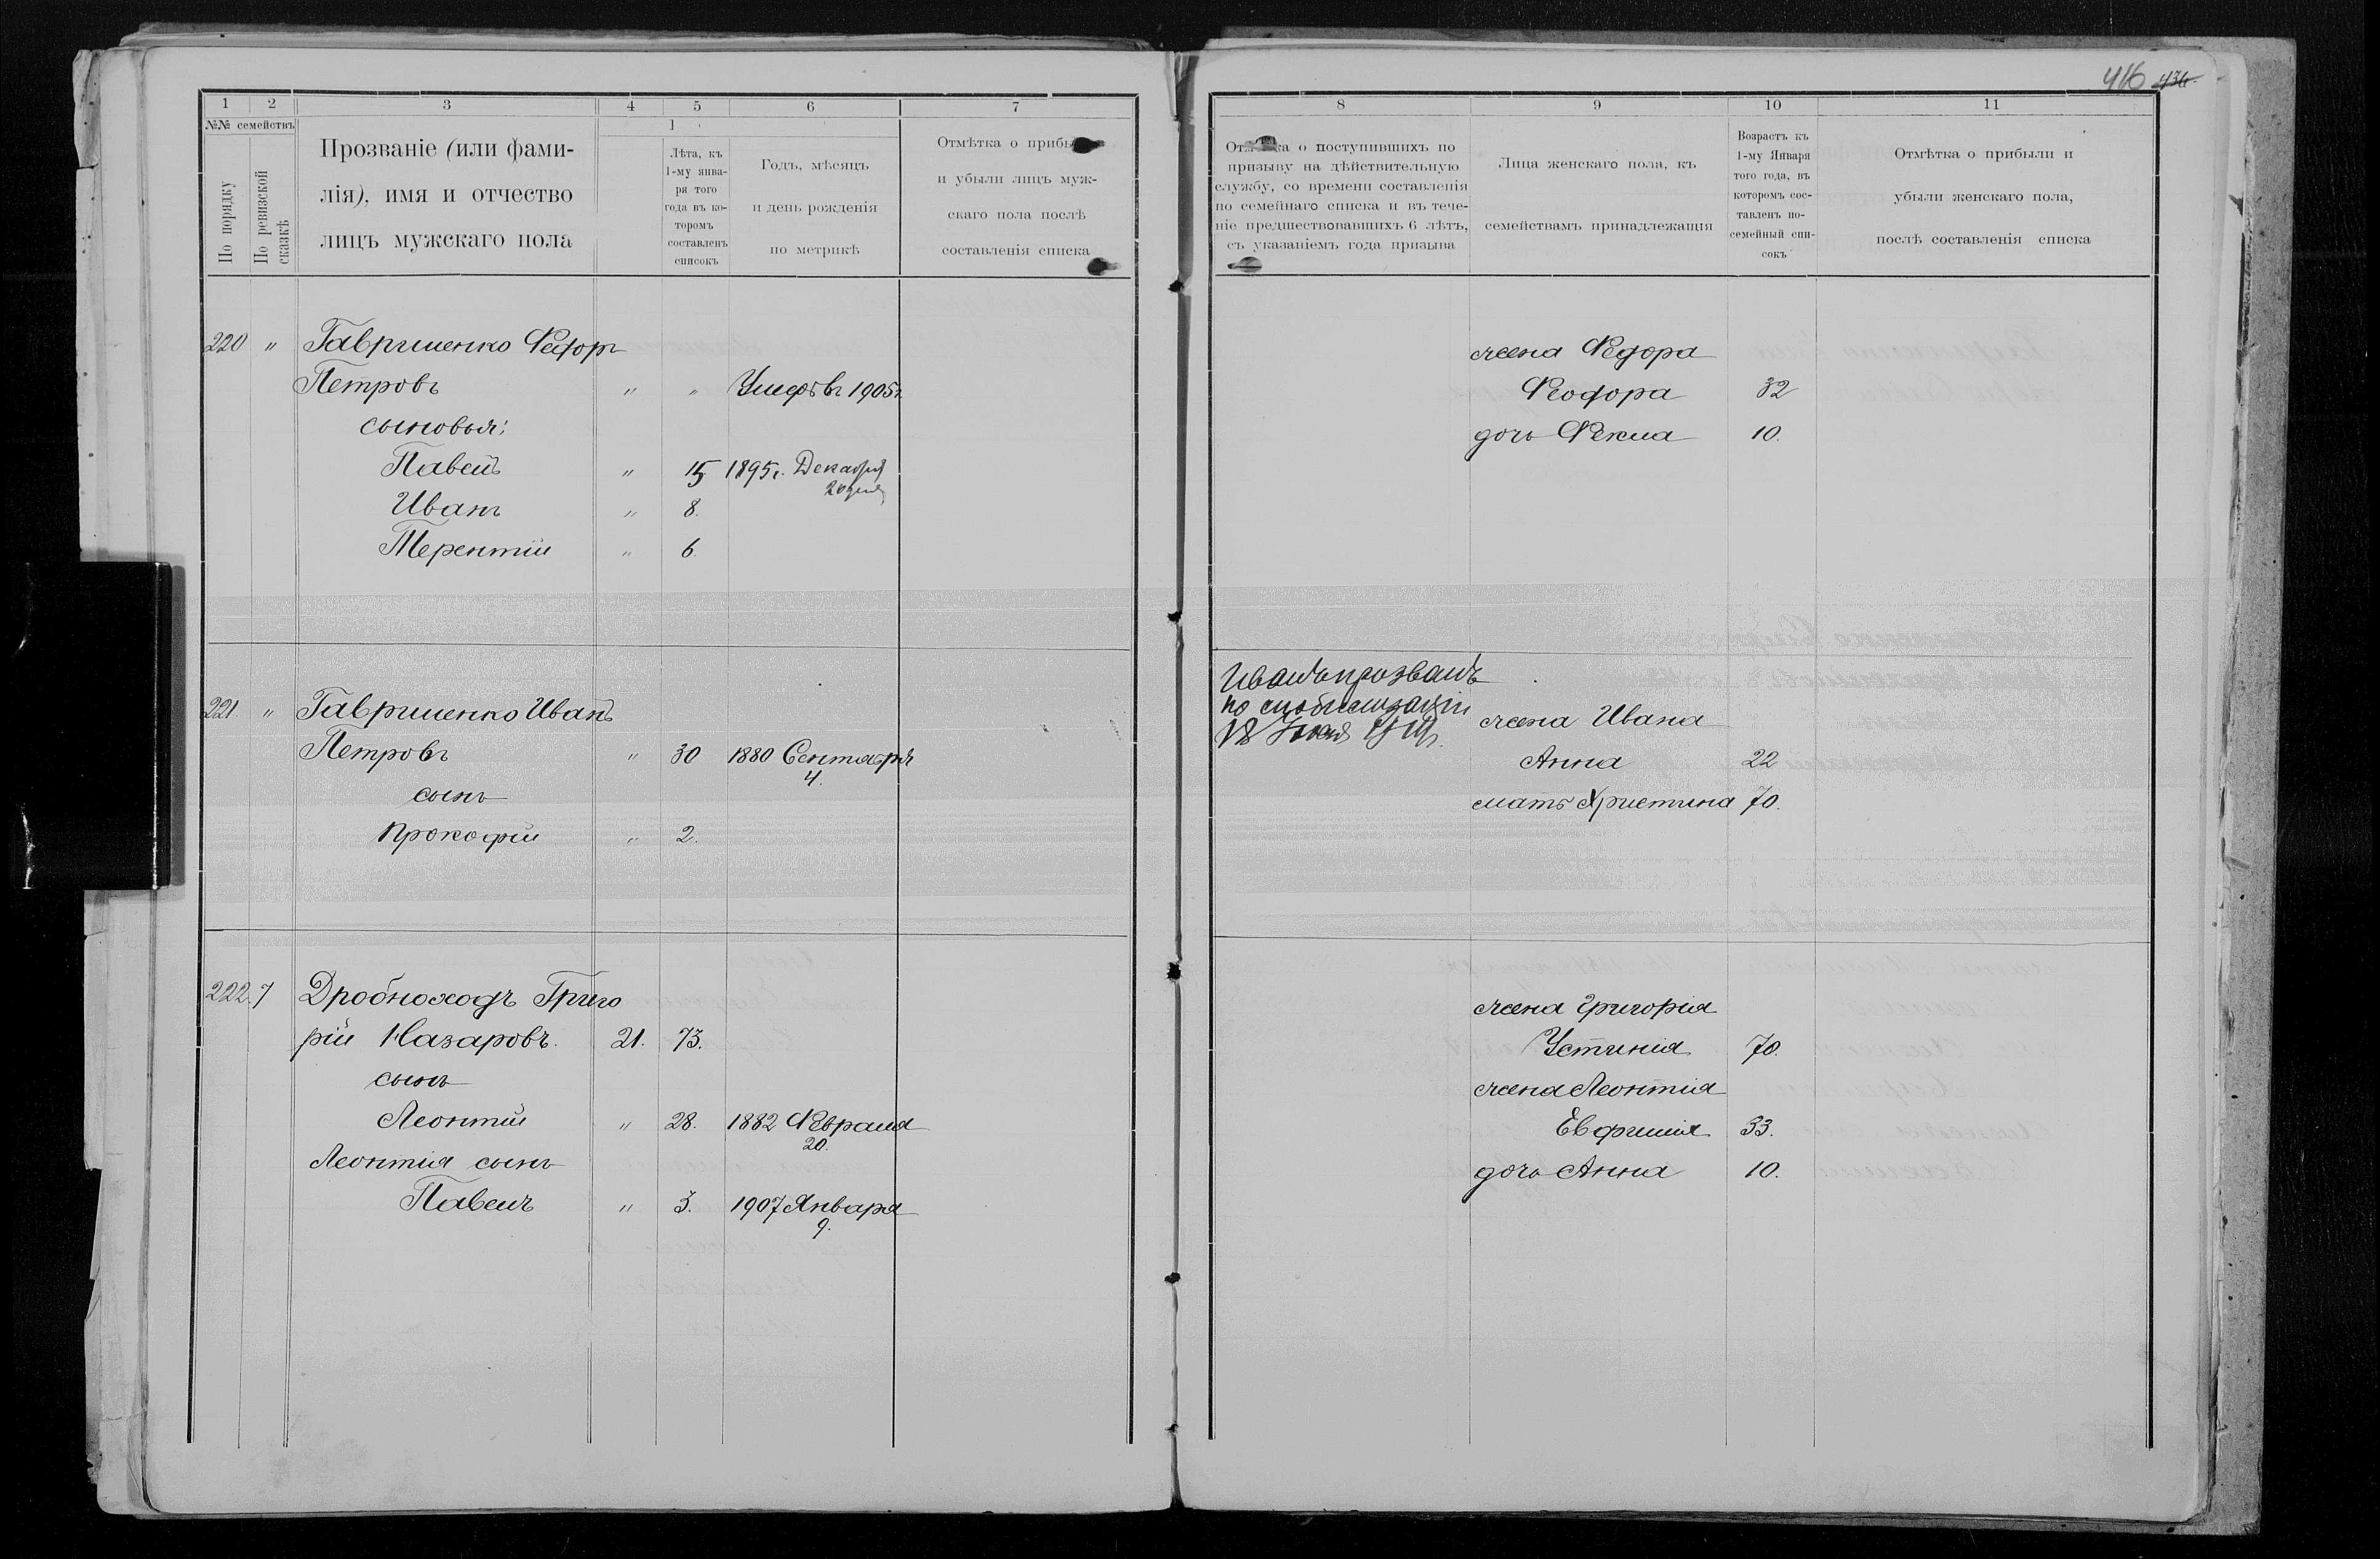 1 2 3 4 5 6 7
№№ семействъ
По порядку
По ревизской сказкѣ
Прозваніе (или фами-
лія), имя и отчество
лицъ мужскаго пола
1
Лѣта, къ
1-му янва-
ря того
года въ ко-
торомъ
составленъ
списокъ
Годъ, мѣсяцъ
и день рожденія
по метрикѣ
Отмѣтка о
и убыли лицъ муж-
скаго пола послѣ
составленія списка
220 " Гавриленко Ѳедоръ
Петровъ " " Умеръ въ 1905г.
сыновья:
Павелъ " 15 1895г. Декабря
20 дня
Иванъ " 8.
Терентій " 6
221. " Гавриленко Иванъ
Петровъ " 30 1880 Сентября
4.
сынъ
Прокофій " 2.
222. 7 Дробноходъ Григо
рій Назаровъ. 21. 73.
сынъ
Леонтій " 28. 1882 Февраля
20.
Леонтія сынъ
Павелъ " 3. 1907 Января
9.
416 434.
8 9 10 11
Отмѣтка о поступившихъ по
призыву на дѣйствительную
службу, со времени составленія
по семейнаго списка и въ тече-
ніе предшествовавшихъ 6 лѣтъ,
съ указаніемъ года призыва
Лица женскаго пола, къ
семействамъ принадлежащія
Возрастъ къ
1-му Января
того года, въ
которомъ сос-
тавленъ по-
семейный спи-
сокъ
Отмѣтка о прибыли и
убыли женскаго пола,
послѣ составленія списка
жена Ѳедора
Ѳеодора 32
дочь Ѳекла 10.
Иванъ призванъ
по мобилизаціи
18 Іюля 1914г.
жена Ивана
Анна 22
мать Христина 70.
жена Григорія
Устинія 70.
жена Леонтія
Евфимія 33.
дочь Анна 10.